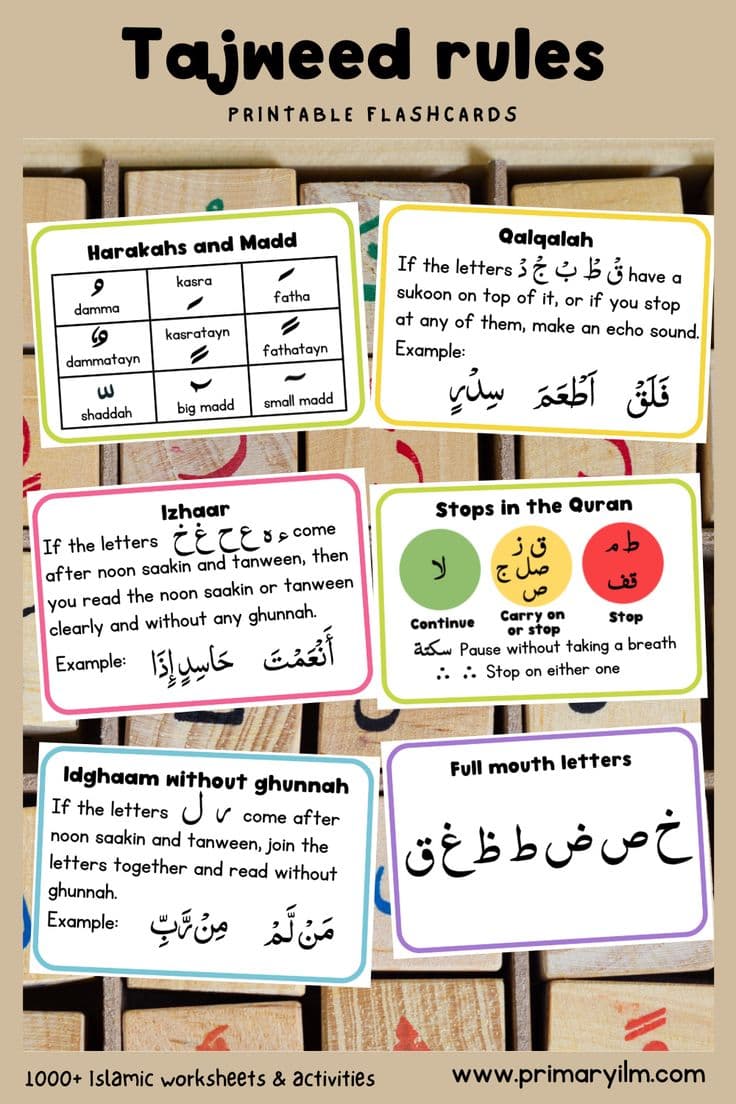 Tajweed rules
PRINTABLE FLASHCARDS
Harakahs and Madd
damma
kasra
fatha
dammatayn
kasratayn
fathatayn
shaddah
big madd
small madd
Qalqalah
If the letters قْ طْ بْ جْ دْ have a
sukoon on top of it, or if you stop
at any of them, make an echo sound.
Example:
فَلَقْ اَطْعَمَ سِدْرٍ
Izhaar
If the letters ء ه ع ح غ خ come
after noon saakin and tanween, then
you read the noon saakin or tanween
clearly and without any ghunnah.
Example: أَنْعَمْتَ حَاسِدٍ إِذَا
Stops in the Quran
لا
ق ز
صل ج
ص
ط م
قف
Continue
Carry on
or stop
Stop
سكتة Pause without taking a breath
∴ ∴ Stop on either one
Idghaam without ghunnah
If the letters ر ل come after
noon saakin and tanween, join the
letters together and read without
ghunnah.
Example: مَنْ لَّمْ مِنْ رَّبِّ
Full mouth letters
خ ص ض ط ظ غ ق
1000+ Islamic worksheets & activities
www.primaryilm.com